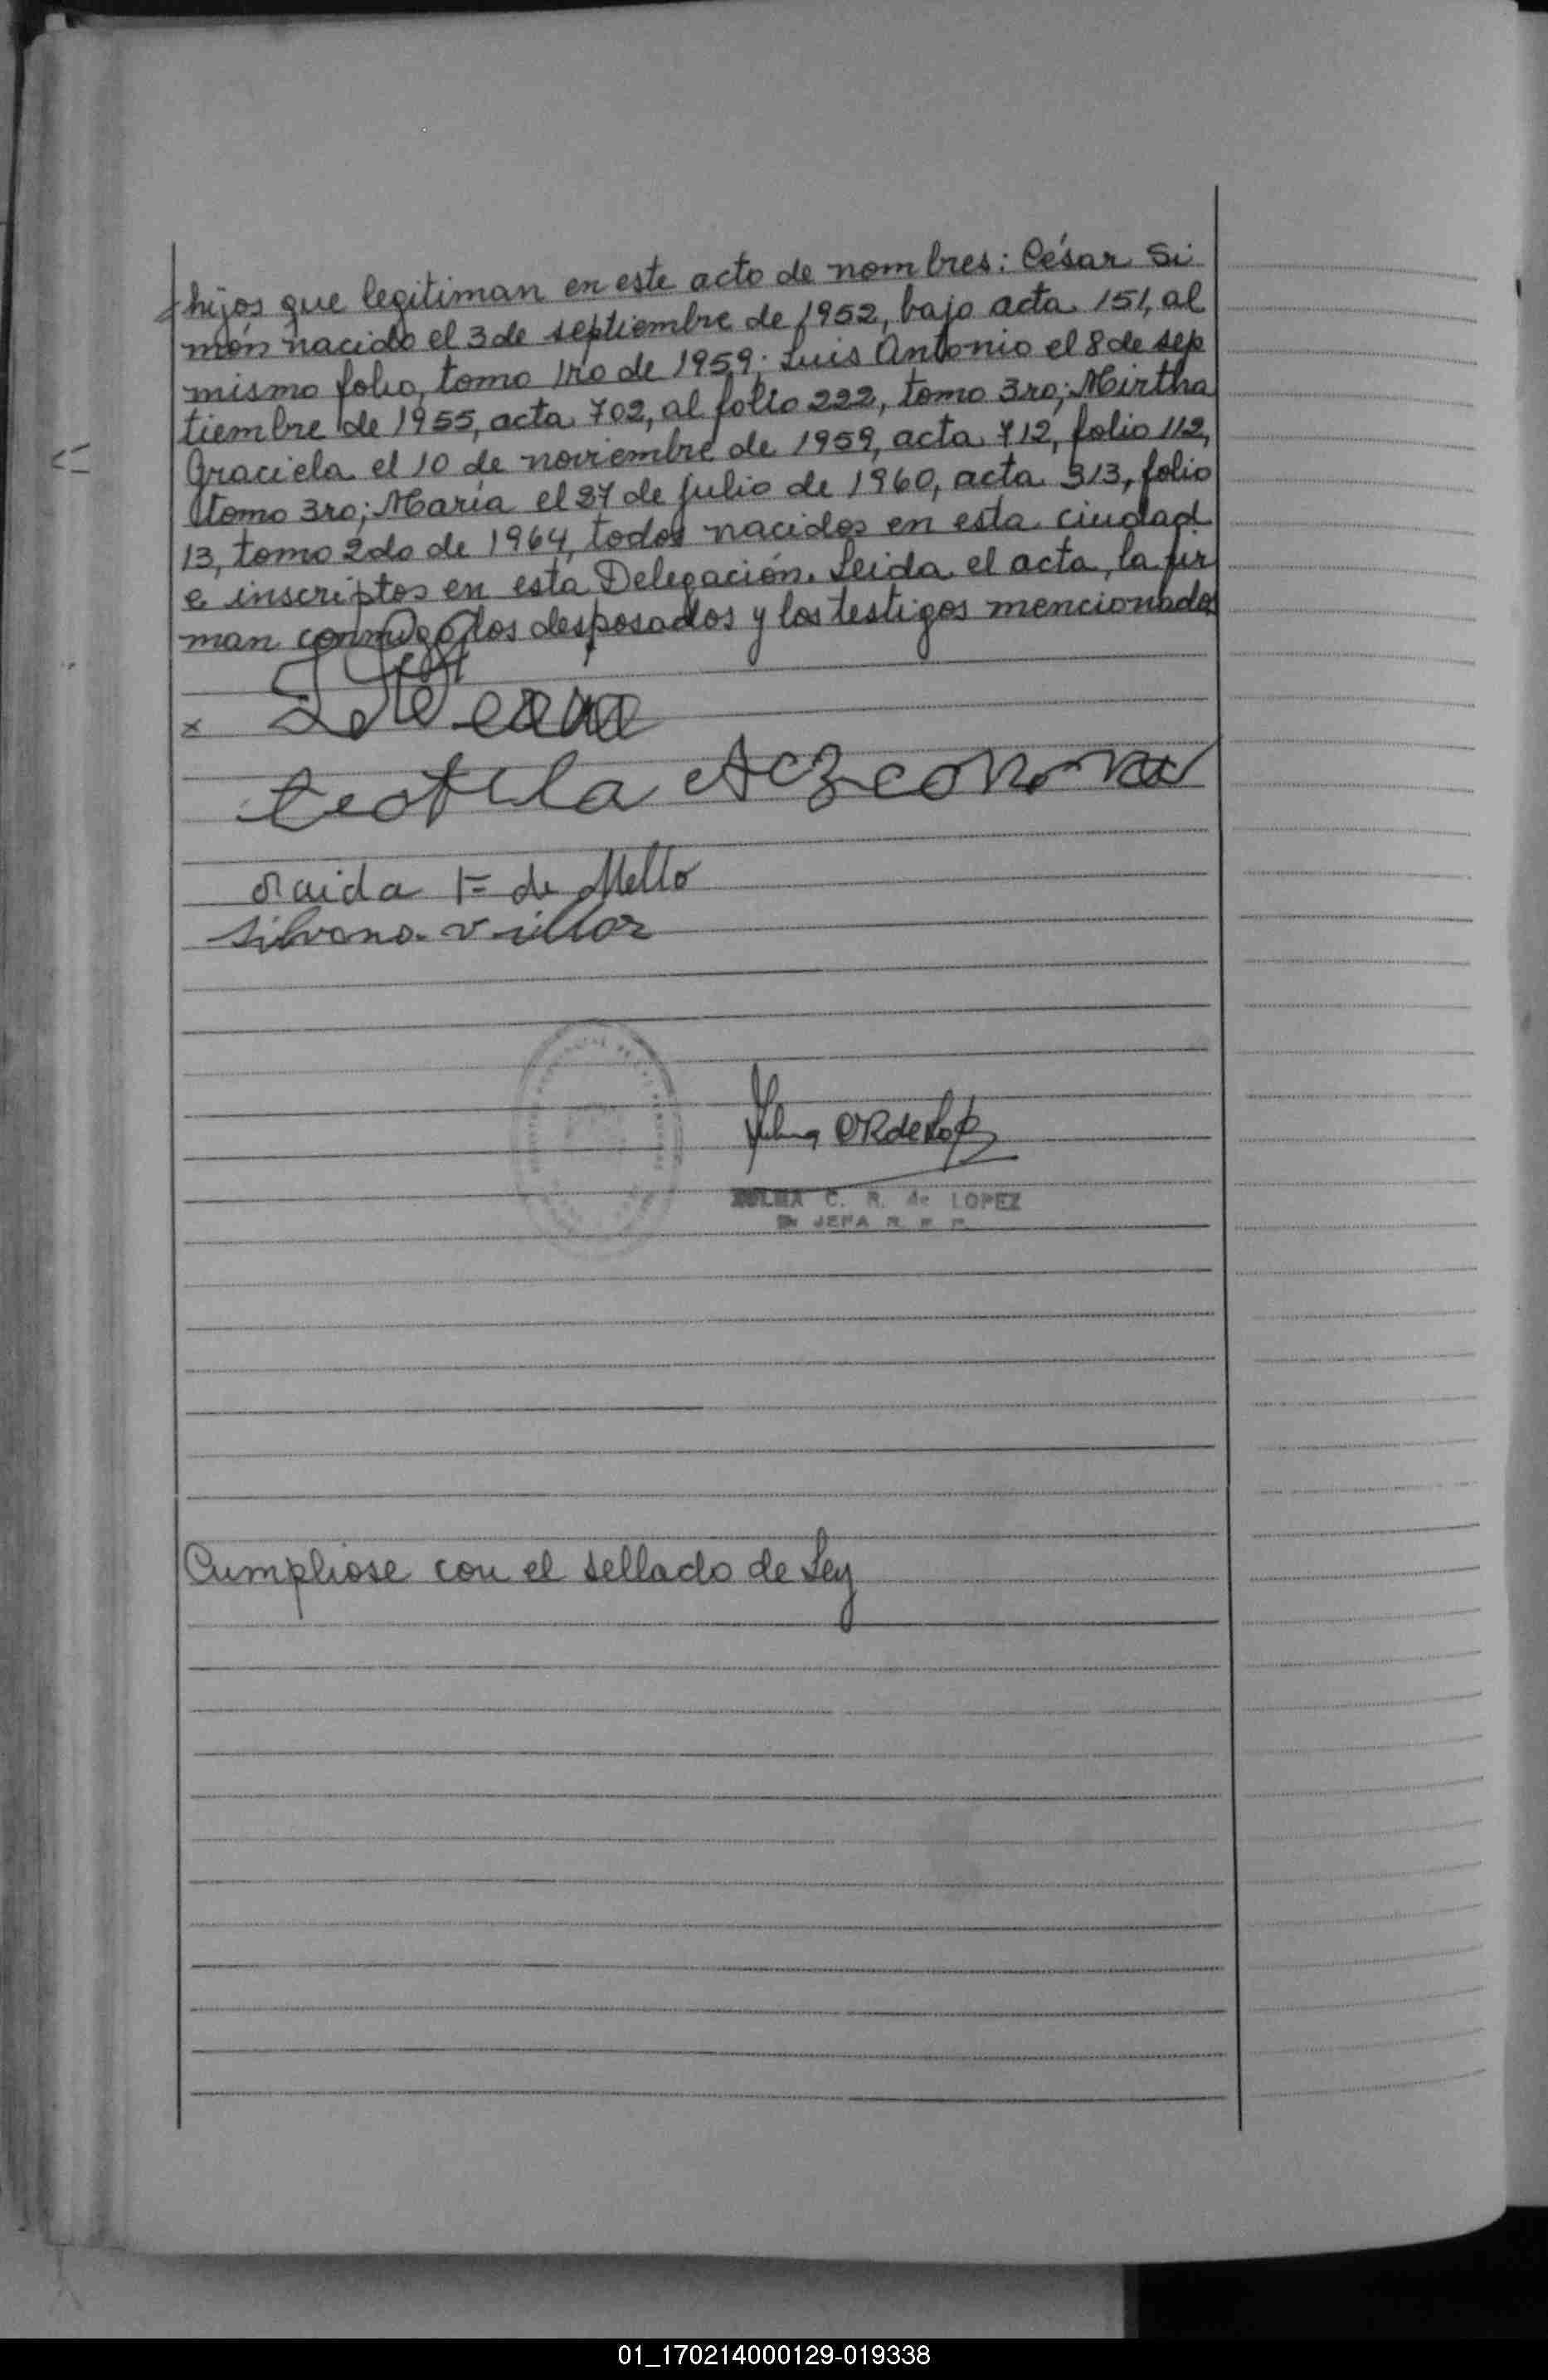 hijos que legitiman en este acto de nombres: César Si
món nacido el 3 de septiembre de 1952, bajo acta 151, al
mismo folio, tomo 1ro de 1959; Luis Antonio el 8 de sep
tiembre de 1955, acta 702, al folio 222, tomo 3ro; Mirtha
Graciela el 10 de noviembre de 1959, acta 712, folio 112,
tomo 3ro; María el 27 de julio de 1960, acta 313, folio
13, tomo 2do de 1964, todos nacidos en esta ciudad
e inscriptos en esta Delegación. Leida el acta, la fir
man conmigo los desposados y los testigos mencionados
x
teofila
F de Mello
Silvano Villar
C. R. de LOPEZ
JEFA
Cumpliose con el sellado de Ley
01_170214000129-019338